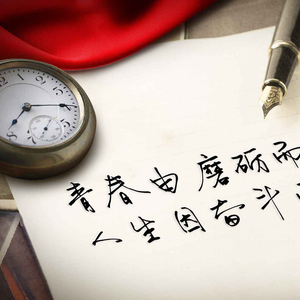 青春由磨砺而
人生因奋斗